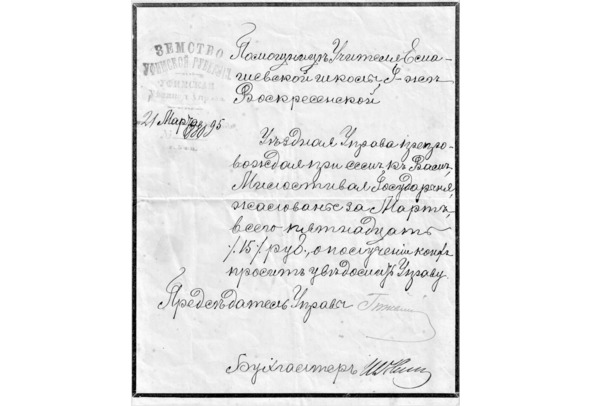 ЗЕМСТВО
УФИМСКОЙ ГУБЕРНІИ
УФИМСКАЯ
21 Марта 1895
Помощницѣ Учителя Есма-
гиевской школы Г-жѣ
Воскресенской
Уѣздная Управа препро-
вождая при семъ къ Вамъ,
Милостивая Государыня,
жалованье за Мартъ,
всего пятнадцать
/15/ руб., о полученіи коихъ
проситъ увѣдомить Управу
Предсѣдатель Управы
Бухгалтеръ